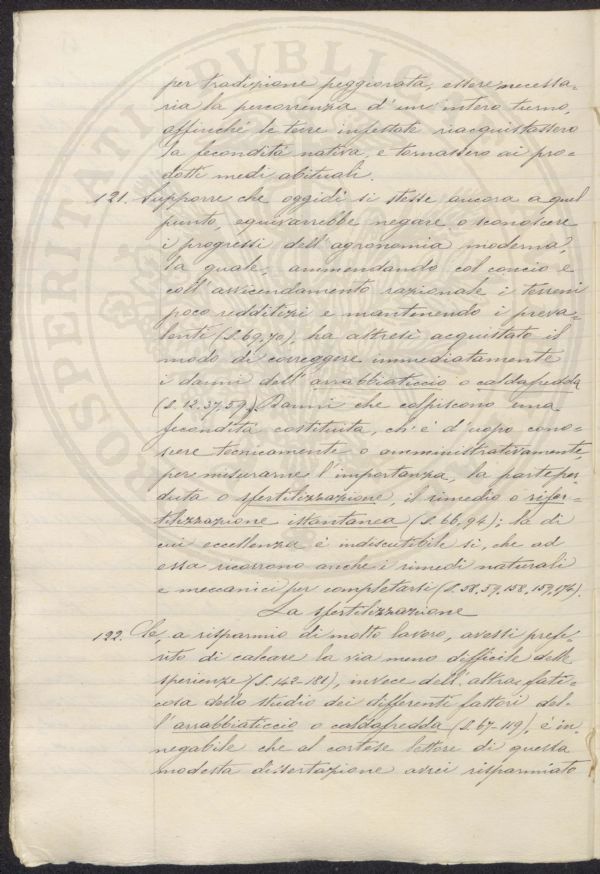 per tradizione peggiorata, essere necessa=
ria la percorrenza d'un intero turno,
affinché le terre infestate riacquistassero
la fecondità nativa, e tornassero ai pro=
dotti medi abituali.
121. Supporre che oggidì si stesse ancora a quel
punto, equivarrebbe negare o sconoscere
i progressi dell'agronomia moderna,
la quale, ammendando col concio e
coll'avvicendamento razionale i terreni
poco redditizi e mantenendo i preva=
lenti (S. 69, 70), ha altresì acquistato il
modo di correggere immediatamente
i danni dell'arrabbiaticcio o caldafredda
(S. 12, 37, 59). Danni che colpiscono una
fecondità costituita, ch'è d'uopo cono=
scere tecnicamente o amministrativamente,
per misurarne l'importanza, la parte per=
duta o sfertilizzazione, il rimedio o rifer=
tilizzazione istantanea (S. 66, 94); la di
cui eccellenza è indiscutibile sì, che ad
essa ricorrono anche i rimedi naturali
e meccanici per completarsi (S. 58, 59, 158, 159, 176).
La sfertilizzazione
122. Se, a risparmio di molto lavoro, avessi prefe=
rito di calcare la via meno difficile delle
sperienze (S. 142-181), invece dell'altra, fati=
cosa dello studio dei differenti fattori del=
l'arrabbiaticcio o caldafredda (S. 67-119), è in=
negabile che al cortese lettore di questa
modesta dissertazione avrei risparmiato
PROSPERITATI PVBLICAE